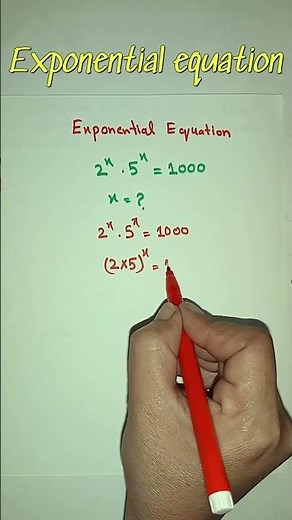 Exponential equation
Exponential Equation
2ˣ · 5ˣ = 1000
x = ?
2ˣ · 5ˣ = 1000
(2×5)ˣ =